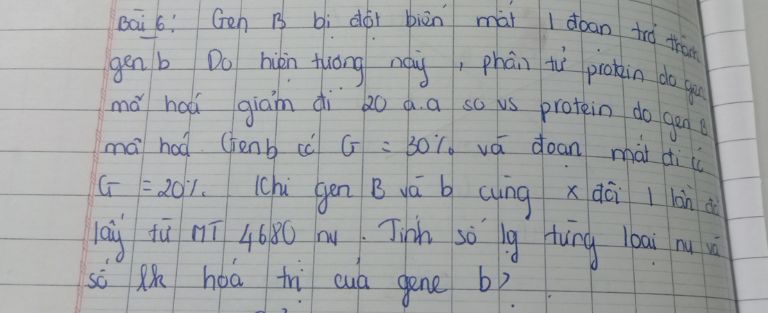 Bài 6: Gen B bị đột biến mất 1 đoạn trở thành
gen b Do hiện tượng này, phân tử protein do gen
mã hoá giảm đi 20 a.a so vs protein do gen B
mã hoá. Gen b có G = 30% và đoạn mất đi có
G = 20%. Khi gen B và b cùng x đôi 1 lần đã
lấy từ MT 4680 nu. Tính số lg từng loại nu và
số lk hoá trị của gene b?